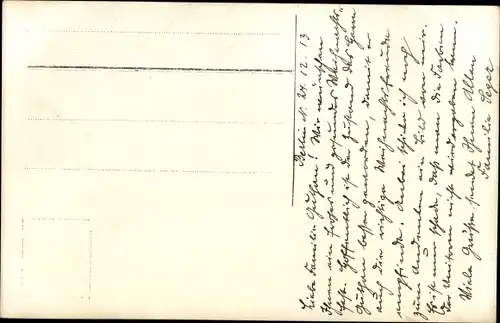 Berlin N. 24.12.13
Liebe Familie Guthan! Wir wünschen
Ihnen ein frohes und gesundes Weihnachts-
fest. Hoffentlich ist der Zustand des Herrn
Guthan besser geworden, damit er
auch die richtige Weihnachtsfreude
empfinde. Anbei schicke ich noch
zum Andenken ein Bild von mir.
Es ist nur schade, daß man die Farben
der Uniform nicht wiedergeben kann.
Viele Grüße sendet Ihnen Allen
Familie